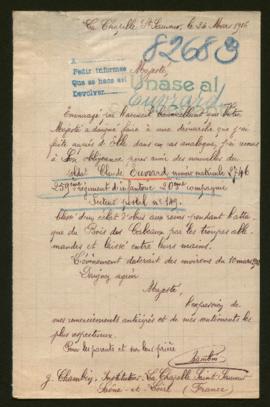 La Chapelle St Sauveur, le 24 Mars 1916
82683
Pedir informes
Que se haga así
Devolver
Majesté,
Unase al
Euvrard
Encouragé par l'accueil bienveillant que Votre
Majesté a daigné faire à une démarche que j'ai
faite auprès d'Elle dans un cas analogue, j'ai recours
à Son obligeance pour avoir des nouvelles du
soldat Claude Euvrard numéro matricule
259ème régiment d'infanterie 20ème compagnie
Secteur postal n°
blessé d'un éclat d'obus aux reins pendant l'atta
que du Bois des Cabaux par les troupes alle
mandes et laissé entre leurs mains.
L'événement daterait des environs du 10 mars
Daignez agréer
Majesté,
l'expression de
mes remerciements anticipés et de mes sentiments les
plus respectueux.
Pour les parents et sur leur prière
J. Chambry, Instituteur La Chapelle Saint Sauveur
Saône-et-Loire (France)